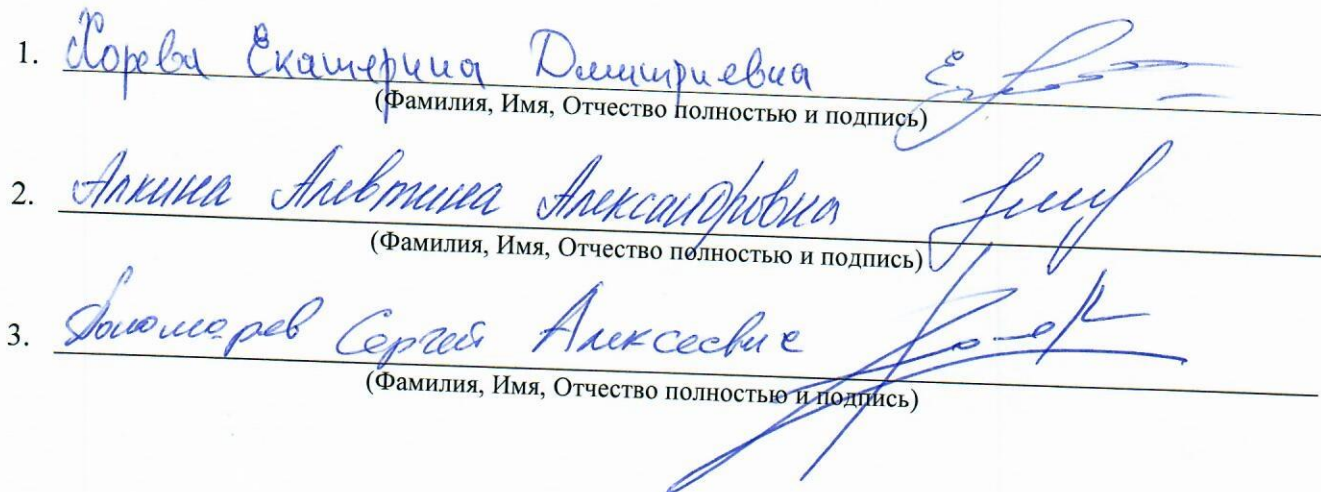 1. Хорева Екатерина Дмитриевна
(Фамилия, Имя, Отчество полностью и подпись)
2. Алкина Алевтина Александровна
(Фамилия, Имя, Отчество полностью и подпись)
3. Пономарев Сергей Алексеевич
(Фамилия, Имя, Отчество полностью и подпись)